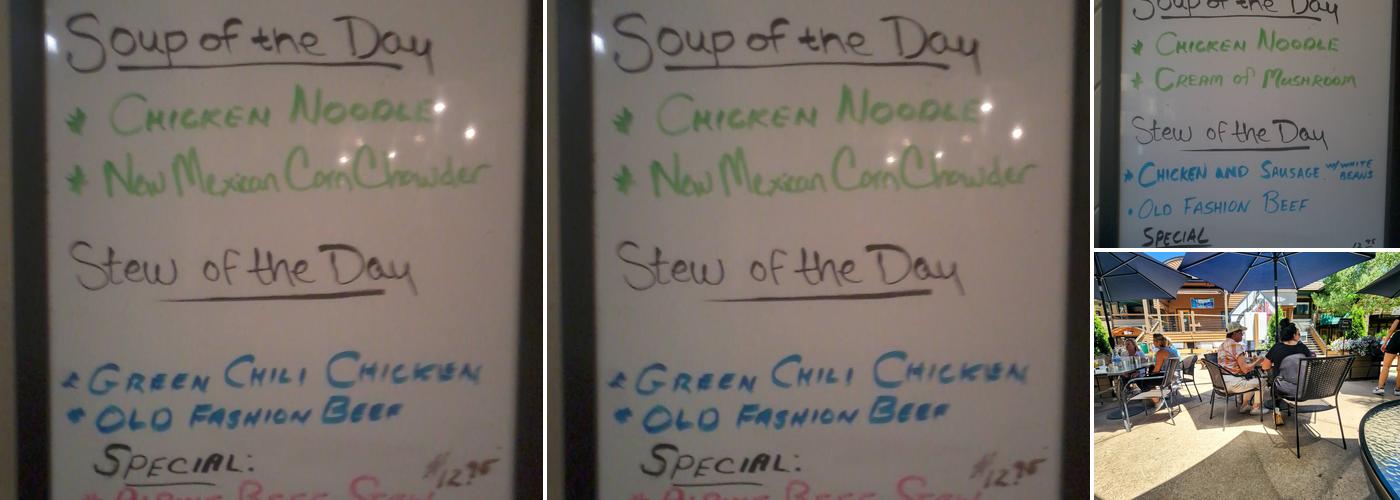 Soup of the Day
* CHICKEN NOODLE
* New Mexican Corn Chowder
Stew of the Day
* GREEN CHILI CHICKEN
* OLD FASHION BEEF
SPECIAL:
$12.95
Soup of the Day
* CHICKEN NOODLE
* New Mexican Corn Chowder
Stew of the Day
* GREEN CHILI CHICKEN
* OLD FASHION BEEF
SPECIAL:
$12.95
Soup of the Day
* CHICKEN NOODLE
* CREAM of MUSHROOM
Stew of the Day
* CHICKEN AND SAUSAGE w/WHITE BEANS
• OLD FASHION BEEF
SPECIAL
12.95